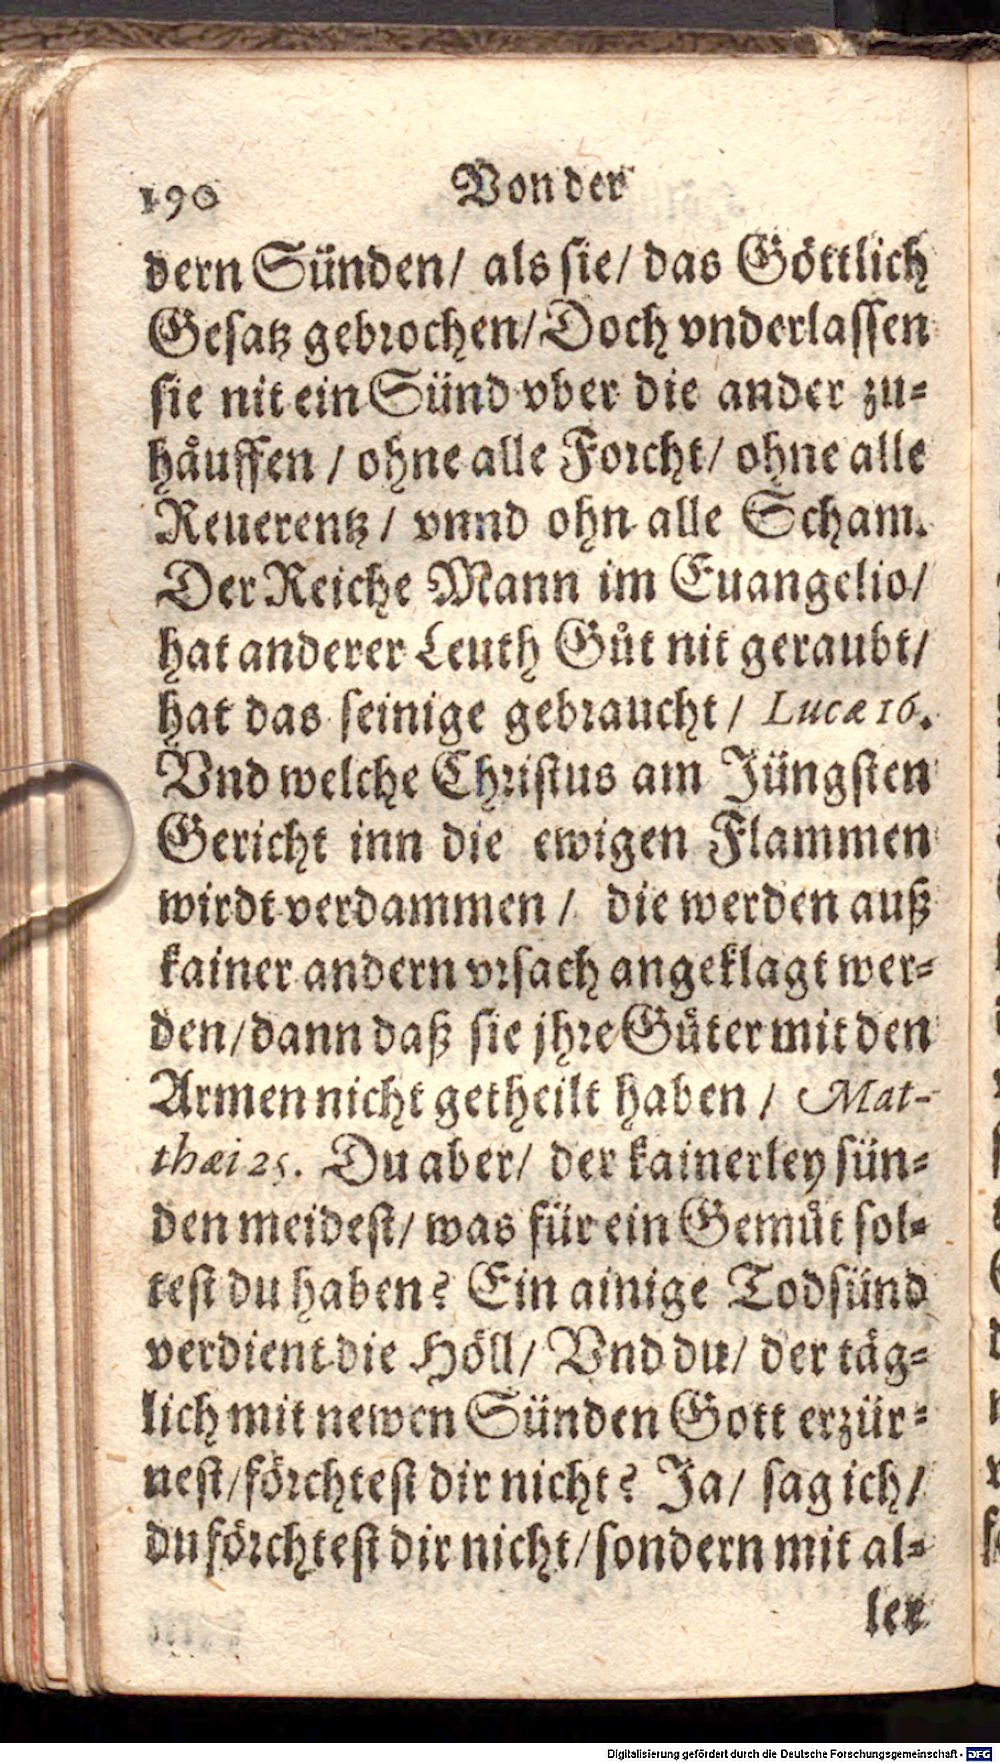 190 Von der
dern Sünden/ als sie/ das Göttlich
Gesatz gebrochen/ Doch vnderlassen
sie nit ein Sünd vber die ander zu-
häuffen / ohne alle Forcht/ ohne alle
Reuerentz / vnnd ohn alle Scham.
Der Reiche Mann im Euangelio/
hat anderer Leuth Gůt nit geraubt/
hat das seinige gebraucht / Lucæ 16.
Vnd welche Christus am Jüngsten
Gericht inn die ewigen Flammen
wirdt verdammen / die werden auß
kainer andern vrsach angeklagt wer-
den/ dann daß sie jhre Gůter mit den
Armen nicht getheilt haben / Mat-
thæi 25. Du aber/ der kainerley sün-
den meidest/ was für ein Gemůt sol-
test du haben? Ein ainige Todsünd
verdient die Höll/ Vnd du/ der täg-
lich mit newen Sünden Gott erzür-
nest/ förchtest dir nicht? Ja/ sag ich/
du förchtest dir nicht/ sondern mit al-
ler
Digitalisierung gefördert durch die Deutsche Forschungsgemeinschaft - DFG